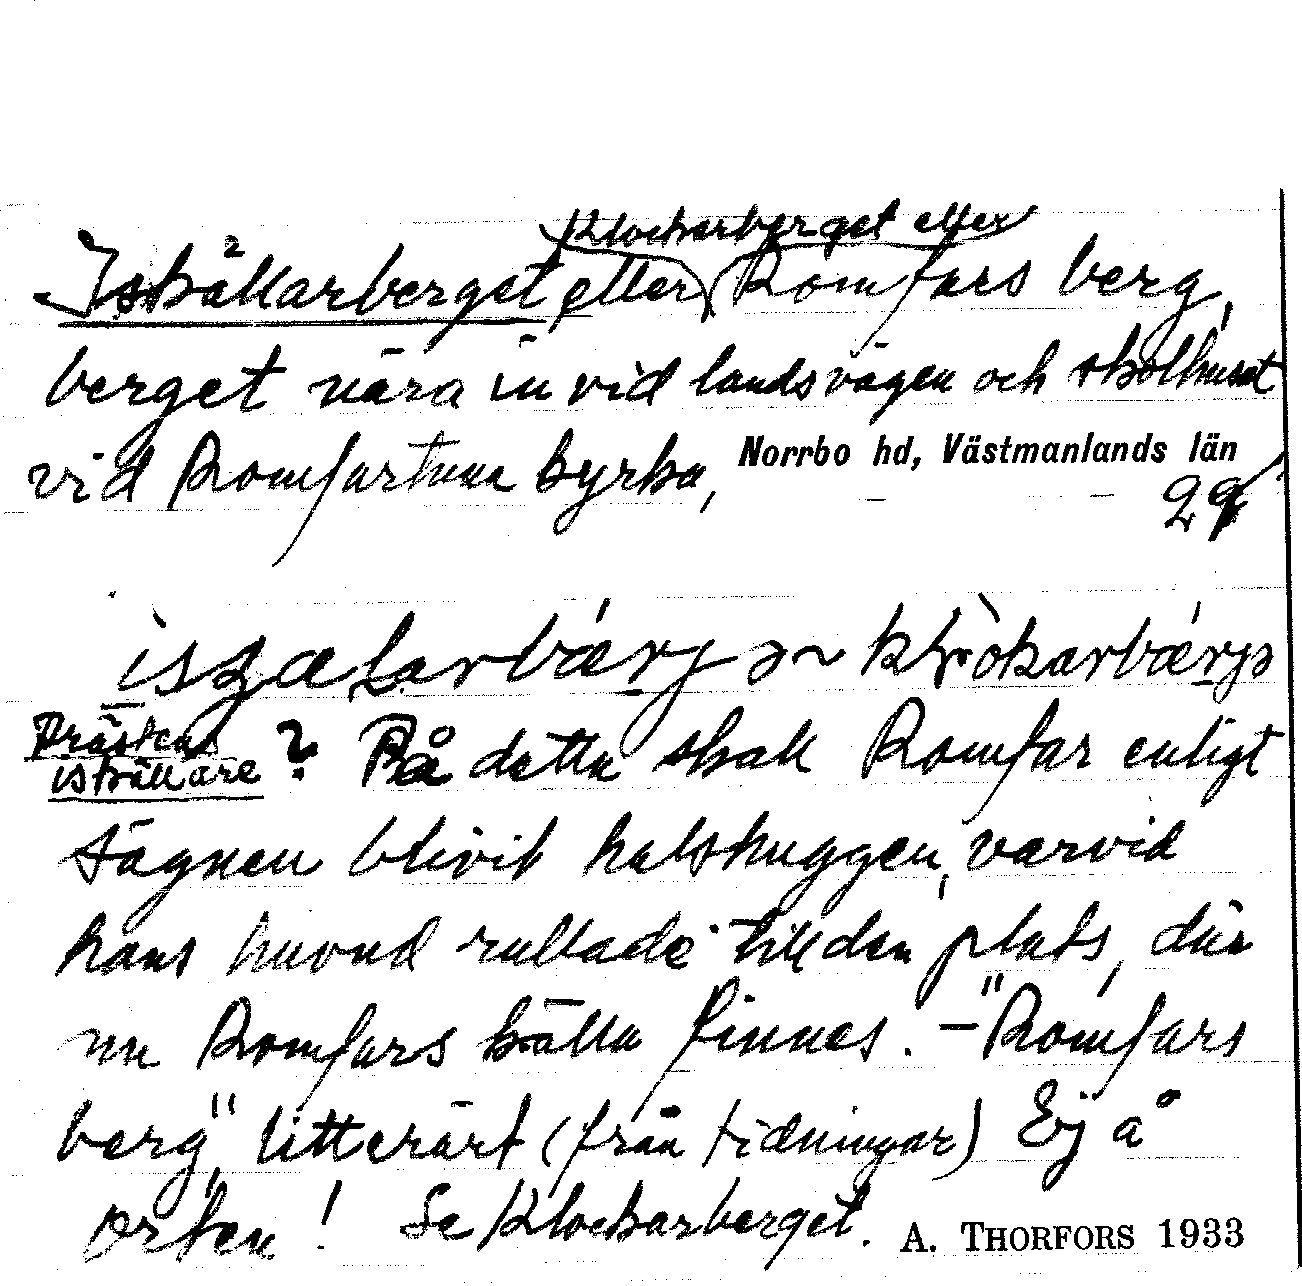 Klockarberget eller
Iskällarberget eller Romfars berg,
berget nära in vid landsvägen och skolhuset
vid Romfartuna kyrka, Norrbo hd, Västmanlands län
29
Prästens
iskällare ? På detta skall Romfar enligt
sägnen blivit halshuggen, varvid
hans huvud rullade till den plats, där
nu Romfars källa finnes. – "Romfars
berg", litterärt (från tidningar) Ej å
orten! Se Klockarberget. A. THORFORS 1933